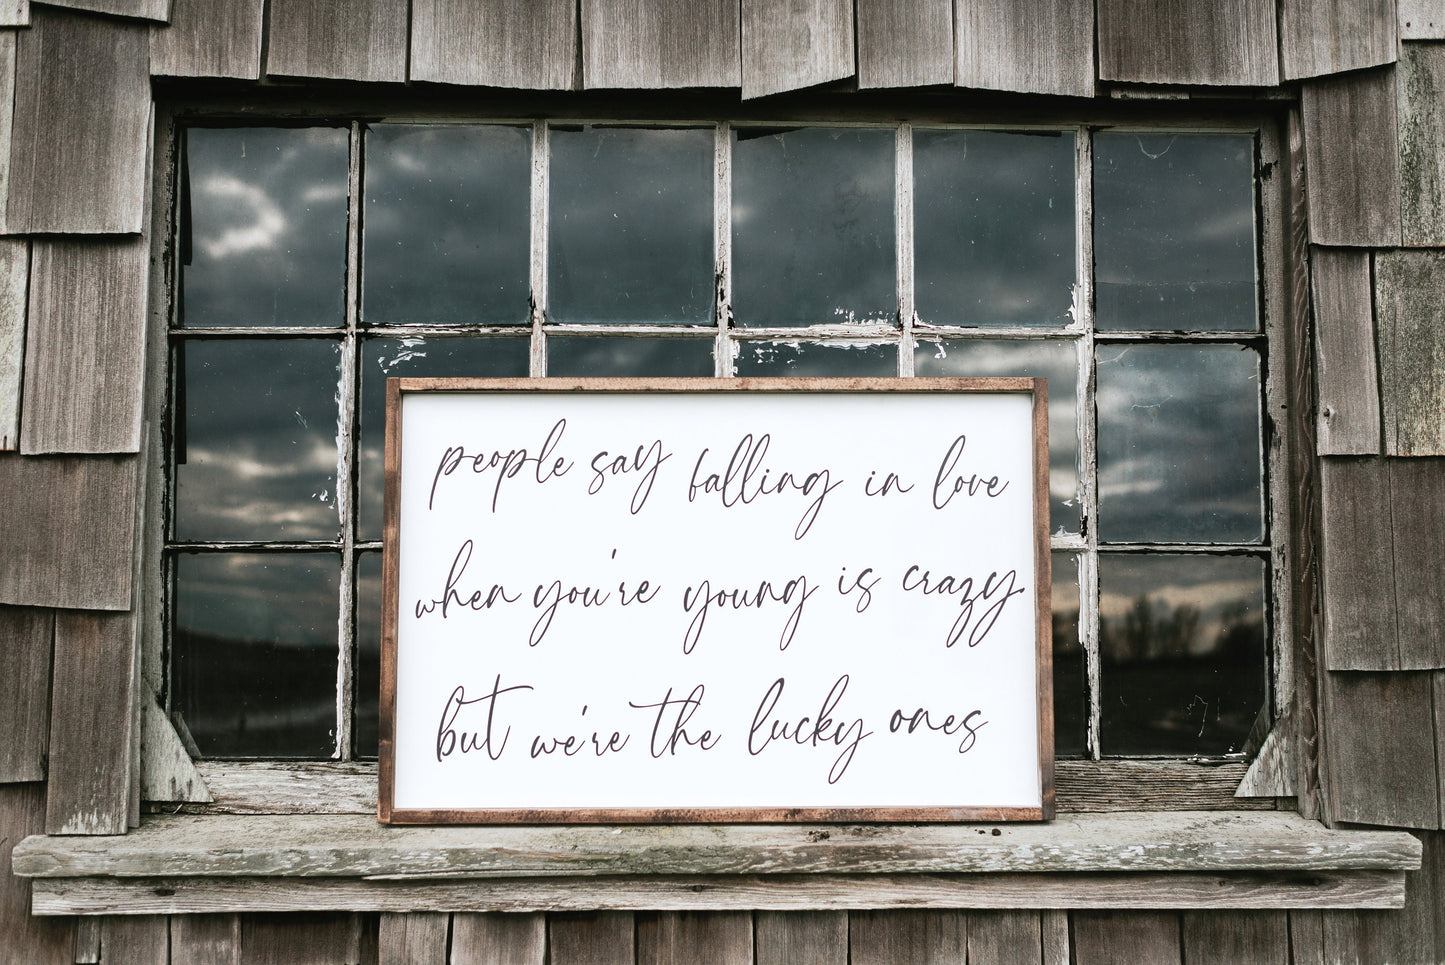 people say falling in love
when you're young is crazy
but we're the lucky ones